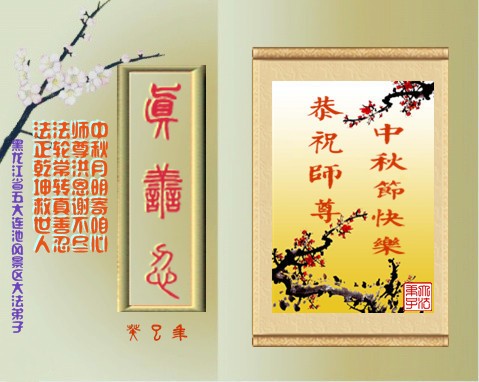 恭祝師尊
中秋節快樂
大法弟子
真善忍
癸巳年
中秋月明寄咱心
师尊洪恩谢不尽
法轮常转真善忍
法正乾坤救世人
黑龙江省五大连池风景区大法弟子